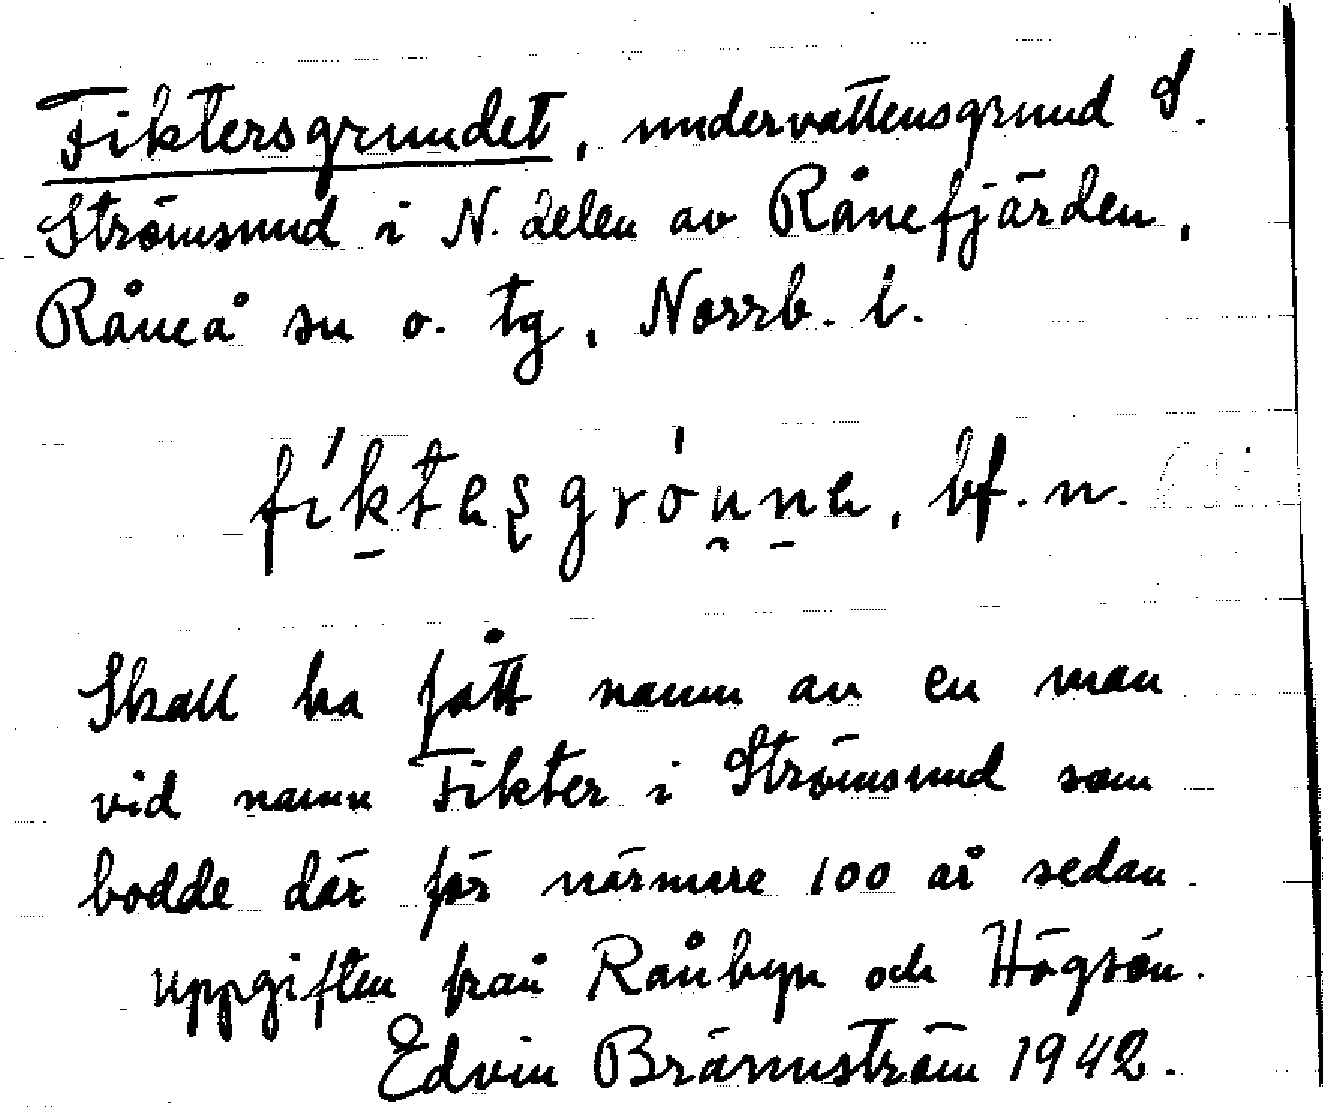 Fiktersgrundet, undervattensgrund S.
Strömsund i N. delen av Rånefjärden,
Råneå sn o. tg, Norrb. l.
bf. n.
Skall ha fått namn av en man
vid namn Fikter i Strömsund som
bodde där för närmare 100 år sedan.
Uppgiften från Rånbyn och Högsön.
Edvin Brännström 1942.